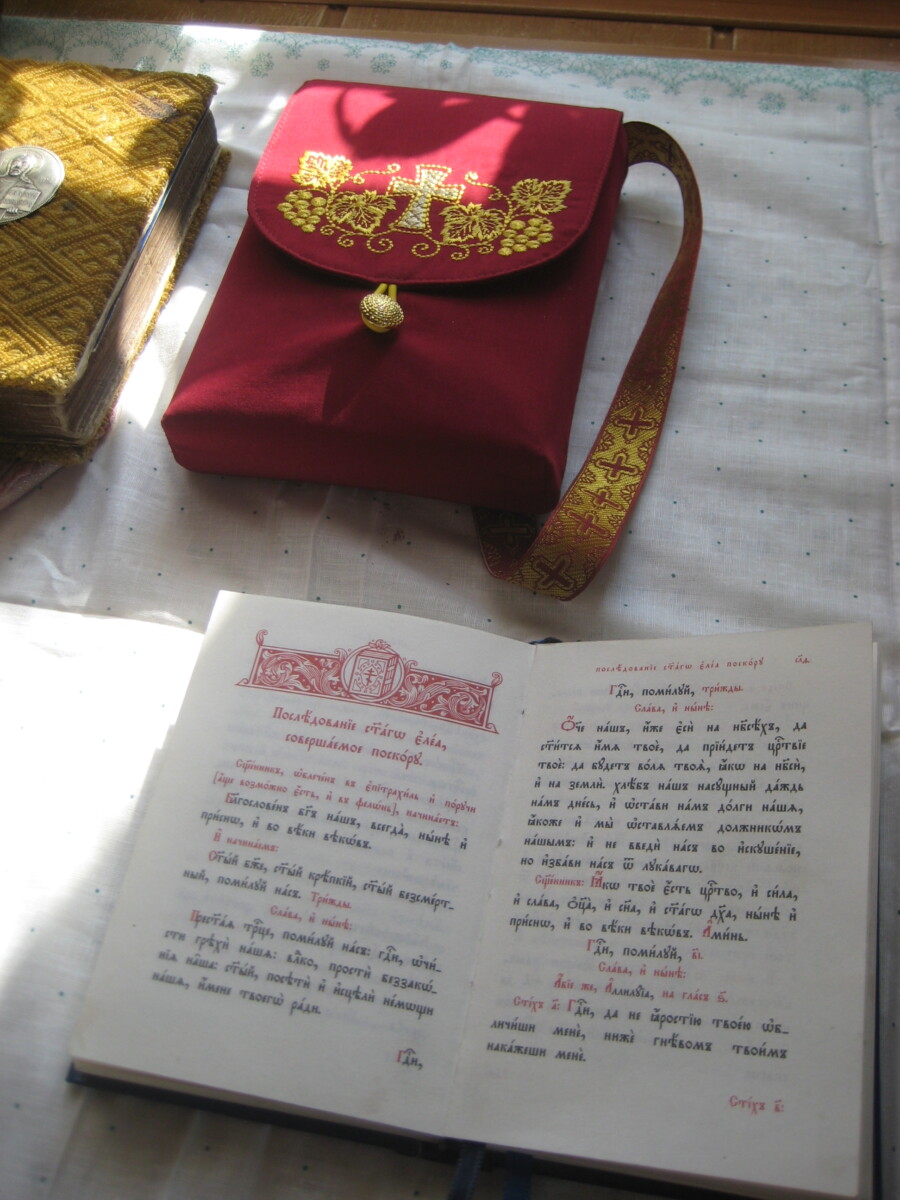 Послѣ́дованїе ст҃а́гѡ є҆ле́а,
соверша́емое поско́рꙋ.
Сщ҃е́нникъ, ѡ҆блече́нъ въ є҆пїтрахи́ль и҆ по́рꙋчи
[а҆́ще возмо́жно є҆́сть, и҆ въ фело́нь], начина́етъ:
Бл҃гослове́нъ бг҃ъ на́шъ, всегда̀, ны́нѣ и҆
при́снѡ, и҆ во вѣ́ки вѣкѡ́въ.
И҆ начина́емъ:
Ст҃ы́й бж҃е, ст҃ы́й крѣ́пкїй, ст҃ы́й безсме́рт-
ный, поми́лꙋй на́съ. Три́жды.
Сла́ва, и҆ ны́нѣ:
Прест҃а́ѧ трⷪ҇це, поми́лꙋй на́съ: гдⷭ҇и, ѡ҆чи́-
сти грѣхѝ на́шѧ: влⷣко, простѝ беззакѡ́-
нїѧ на́ша: ст҃ы́й, посѣтѝ и҆ и҆сцѣлѝ не́мѡщи
на́шѧ, и҆́мене твоегѡ̀ ра́ди.
Гдⷭ҇и,
послѣ́дованїе ст҃а́гѡ є҆ле́а поско́рꙋ
Гдⷭ҇и, поми́лꙋй, три́жды.
Сла́ва, и҆ ны́нѣ:
Ѻ҆́ч҃е на́шъ, и҆́же є҆сѝ на нб҃сѣ́хъ, да
ст҃и́тсѧ и҆́мѧ твоѐ, да прїи́детъ црⷭ҇твїе
твоѐ: да бꙋ́детъ во́лѧ твоѧ̀, ꙗ҆́кѡ на нб҃сѝ,
и҆ на землѝ. хлѣ́бъ на́шъ насꙋ́щный да́ждь
на́мъ дне́сь, и҆ ѡ҆ста́ви на́мъ до́лги на́шѧ,
ꙗ҆́коже и҆ мы̀ ѡ҆ставлѧ́емъ должникѡ́мъ
на́шымъ: и҆ не введѝ на́съ во и҆скꙋше́нїе,
но и҆зба́ви на́съ ѿ лꙋка́вагѡ.
Сщ҃е́нникъ: Ꙗ҆́кѡ твоѐ є҆́сть црⷭ҇тво, и҆ си́ла,
и҆ сла́ва, ѻ҆ц҃а̀, и҆ сн҃а, и҆ ст҃а́гѡ дх҃а, ны́нѣ и҆
при́снѡ, и҆ во вѣ́ки вѣкѡ́въ. А҆ми́нь.
Гдⷭ҇и, поми́лꙋй, в҃і.
Сла́ва, и҆ ны́нѣ:
А҆́бїе же, А҆ллилꙋ́їа, на гла́съ ѕ҃.
Сті́хъ а҃: Гдⷭ҇и, да не ꙗ҆́ростїю твое́ю ѡ҆б-
личи́ши менѐ, нижѐ гнѣ́вомъ твои́мъ
нака́жеши менѐ.
Сті́хъ в҃: